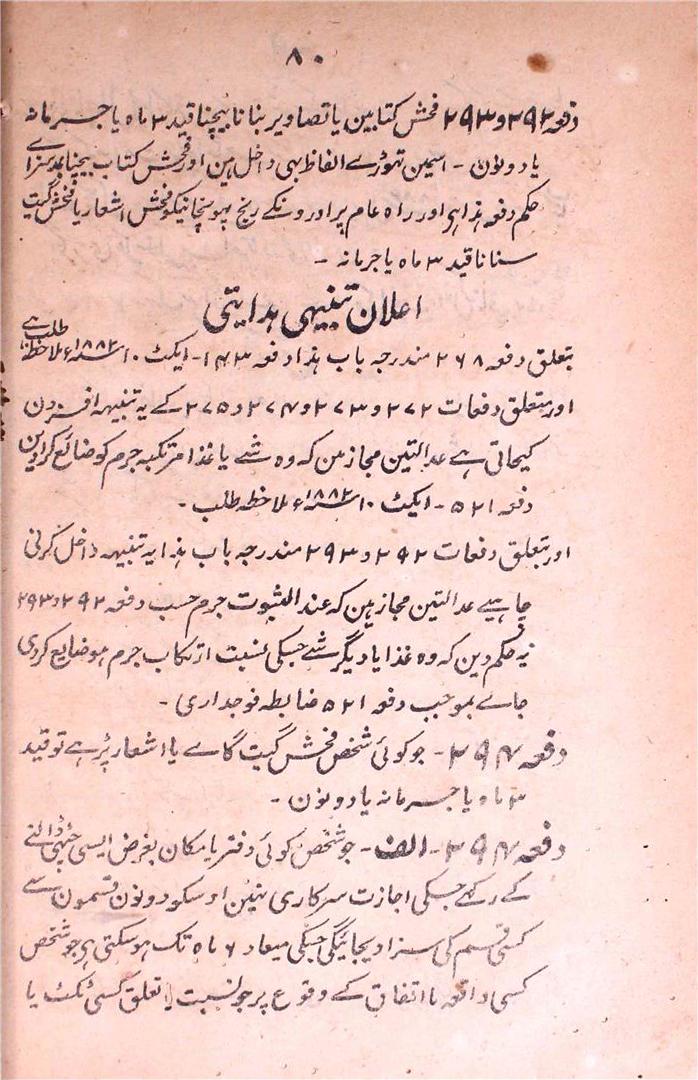 ۸۰
دفعہ ۲۹۲ و ۲۹۳ فحش کتابین یا تصاویر بنانا بیچنا قید ۳ ماہ یا جرمانہ
یا دونون - اسمین تھوڑے الفاظ بھی داخل ہین اور فحش کتاب بیچنا بھی سزاے
حکم دفعہ ہذا ہی اور راہ عام پر اورونکے رنج پہونچانیکو فحش اشعار یا فحش گیت
سنانا قید ۳ ماہ یا جرمانہ -
اعلان تنبیہی ہدایتی
بتعلق دفعہ ۲۶۸ مندرجہ باب ہذا دفعہ ۱۴۳ - ایکٹ ۱۰ سنہ ۱۸۸۲ء ملاحظہ طلب ہے
اور متعلق دفعات ۲۷۲ و ۲۷۳ و ۲۷۴ و ۲۷۵ - کے یہ تنبیہہ افزون
کیجاتی ہے عدالتین مجاز ہین کہ وہ شے یا غذا مرتکبہ جرم کو ضائع کرادین
دفعہ ۵۲۱ - ایکٹ ۱۰ سنہ ۱۸۸۲ء ملاحظہ طلب -
اور بتعلق دفعات ۲۹۲ و ۲۹۳ مندرجہ باب ہذا یہ تنبیہہ داخل کرنی
چاہیے عدالتین مجاز ہین کہ عند الثبوت جرم حسب دفعہ ۲۹۲ و ۲۹۳
یہ حکم دین کہ وہ غذا یا دیگر شے جسکی نسبت ارتکاب جرم ہو ضایع کردی
جاے بموجب دفعہ ۵۲۱ ضابطہ فوجداری -
دفعہ ۲۹۴ - جو کوئی شخص فحش گیت گاے یا اشعار پڑہے تو قید
۳ ماہ یا جرمانہ یا دونون -
دفعہ ۲۹۴ - الف - جو شخص کوئی دفتر یا مکان بغرض ایسی چٹھی ڈالنے
کے رکھے جسکی اجازت سرکاری نہین اوسکو دونون قسمون سے
کسی قسم کی سزا دیجائیگی جسکی میعاد ۶ ماہ تک ہوسکتی ہی جو شخص
کسی واقعہ یا اتفاق کے وقوع پر جو نسبت یا تعلق کسی ٹکٹ یا